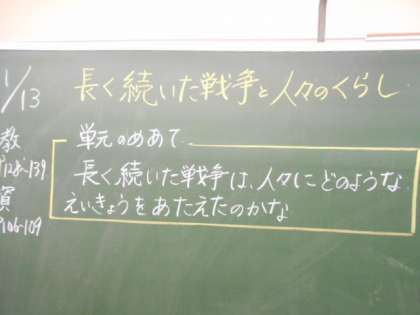 1/13
長く続いた戦争と人々のくらし
教
P128~139
資
P106~109
単元のめあて
長く続いた戦争は、人々にどのような
えいきょうをあたえたのかな